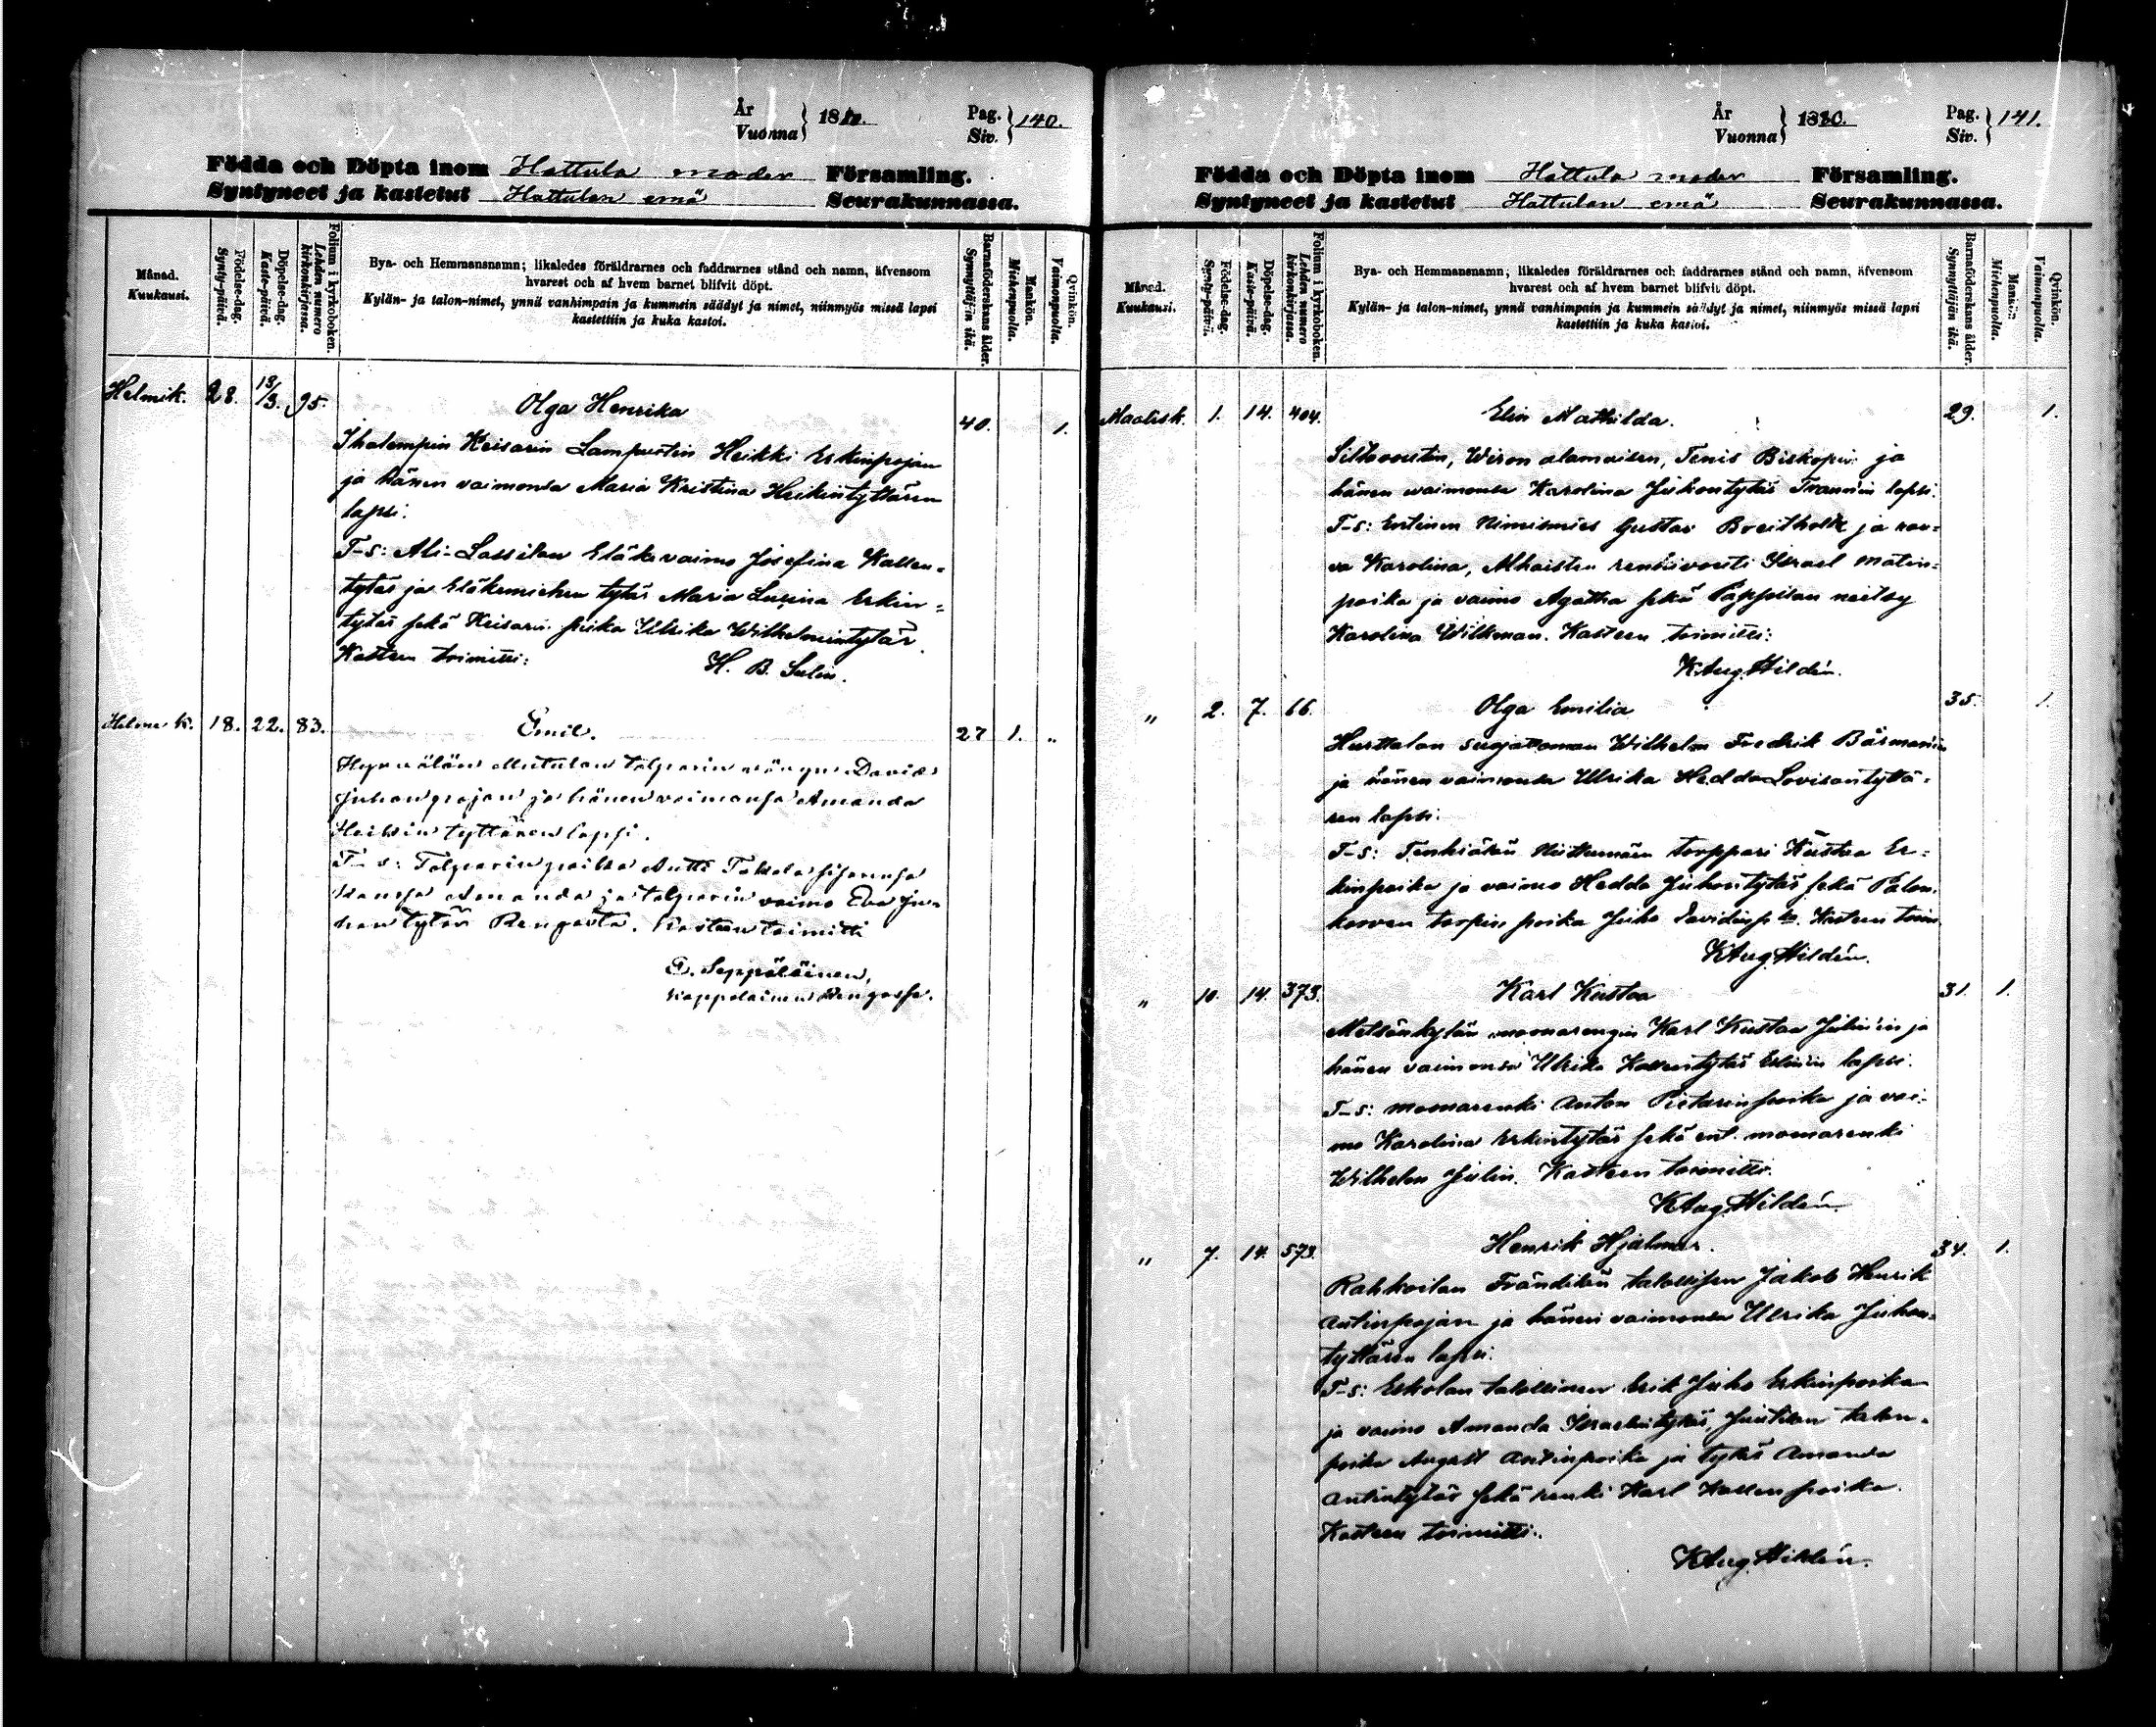 År
Vuonna } 1880. Pag. Siv. } 140.
Födda och Döpta inom Hattula moder Församling.
Syntyneet ja kastetut Hattulan emä Seurakunnassa.
Månad. Kuukausi.
Födelse-dag. Synty-päivä.
Döpelse-dag. Kaste-päivä.
Folium i kyrkoboken. Lehden numero kirkonkirjassa.
Bya- och Hemmansnamn; likaledes föräldrarnes och faddrarnes stånd och namn, äfvensom
hvarest och af hvem barnet blifvit döpt.
Kylän- ja talon-nimet, ynnä vanhimpain ja kummein säädyt ja nimet, niinmyös missä lapsi
kastettiin ja kuka kastoi.
Barnaföderskans ålder. Synnyttäjän ikä.
Mankön. Miehenpuolta.
Qvinkön. Vaimonpuolta.
Helmik. 28. 13/3. 95. Olga Henrika 40. 1.
Ihalempin Keisarin Lampuotin Heikki Erkinpojan
ja hänen vaimonsa Maria Kristina Heikintyttären
lapsi.
T-s: Ali-Lassilan Eläkevaimo Josefina Kallen-
tytär ja Eläkemiehen tytär Maria Erkin-
tytär sekä Keisarin piika Ulrika Wilhelmintytär.
Kasteen toimitti: H. B. Sulin.
Helme k. 18. 22. 83. Emil. 27 1. "
Mutulan Talparin David
Juhanpojan ja hänen vaimonsa Amanda
Heikin tyttären lapsi.
T-s: Talparin poika Antti Tokola sisarensa
kanssa Amanda ja talparin vaimo Eva Ju-
hantytär Rengosta. Kasteen toimitti
E. Seppäläinen,
Kappalainen Rengossa.
År
Vuonna } 1880. Pag. Siv. } 141.
Födda och Döpta inom Hattula moder Församling.
Syntyneet ja kastetut Hattulan emä Seurakunnassa.
Månad. Kuukausi.
Födelse-dag. Synty-päivä.
Döpelse-dag. Kaste-päivä.
Folium i kyrkoboken. Lehden numero kirkonkirjassa.
Bya- och Hemmansnamn; likaledes föräldrarnes och faddrarnes stånd och namn, äfvensom
hvarest och af hvem barnet blifvit döpt.
Kylän- ja talon-nimet, ynnä vanhimpain ja kummein säädyt ja nimet, niinmyös missä lapsi
kastettiin ja kuka kastoi.
Barnaföderskans ålder. Synnyttäjän ikä.
Mankön. Miehenpuolta.
Qvinkön. Vaimonpuolta.
Maalisk. 1. 14. 404. Elin Mathilda. 29. 1.
Siltavoutin, Wiron alamaisen, Tenis Biskopin ja
hänen vaimonsa Karolina Juhontytär lapsi.
T-s: Entinen Nimismies Gustav Breitholtz ja rou-
va Karolina, renkivouti Israel Matin-
poika ja vaimo Agatha sekä Pappilan neitsy
Karolina Wilkman. Kasteen toimitti:
K Aug. Hildén.
" 2. 7. 66. Olga Emilia 35. 1.
Hurttalan suojattoman Wilhelm Fredrik Bärman'in
ja hänen vaimonsa Ulrika Hedda Lovisantyttä-
ren lapsi.
T-s: Tenhiälän torppari Kustaa Er-
kinpoika ja vaimo Hedda Juhontytär sekä Palon-
korven torpin poika Juho Davidinp. Kasteen toim.
K Aug. Hildén.
" 10. 14. 373. Karl Kustaa 31. 1.
Metsänkylän muonarengin Karl Kustaa Julin'in ja
hänen vaimonsa Ulrika Kallentytär lapsi.
T-s: muonarenki Anton Pietarinpoika ja vai-
mo Karolina Erkintytär sekä ent. muonarenki
Wilhelm Julin. Kasteen toimitti.
K Aug. Hildén.
" 7. 14. 573. Henrik Hjalmar. 34. 1.
Rahkoilan Frändilän talollisen Jakob Henrik
Antinpojan ja hänen vaimonsa Ulrika Juhon-
tyttären lapsi.
T-s: Eskolan talollinen Erik Juho Erkinpoika
ja vaimo Amanda Israelintytär, Juutilan talon-
poika August Antinpoika ja tytär Amanda
Antintytär sekä renki Karl Kallenpoika.
Kasteen toimitti:
K Aug. Hildén.